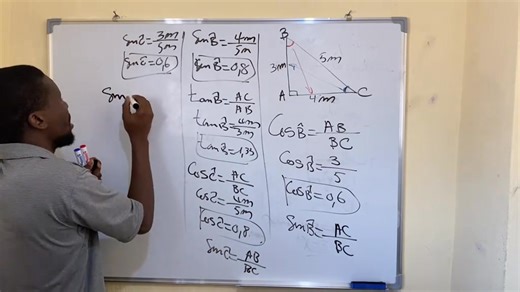 sin Ĉ = 3m/5m
sin Ĉ = 0,6
sin
sin B̂ = 4m/5m
sin B̂ = 0,8
tan B̂ = AC/AB
tan B̂ = 4m/3m
tan B̂ = 1,33
Cos Ĉ = AC/BC
Cos Ĉ = 4m/5m
Cos Ĉ = 0,8
sin Ĉ = AB/BC
B
3m
5m
A
4m
C
Cos B̂ = AB/BC
Cos B̂ = 3/5
Cos B̂ = 0,6
sin B̂ = AC/BC